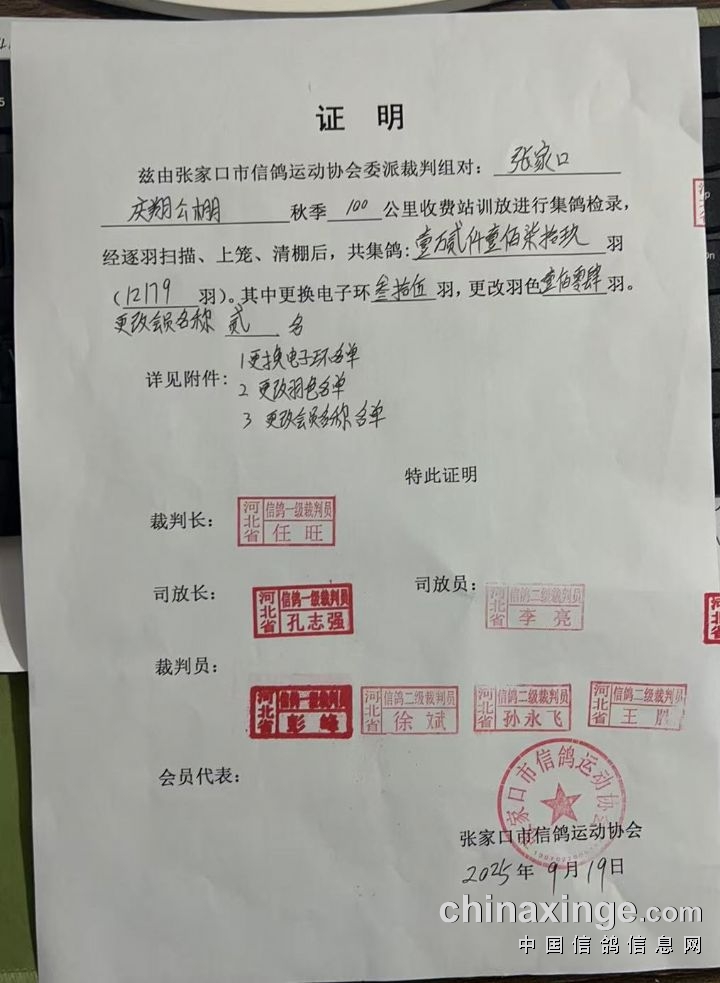 证 明
兹由张家口市信鸽运动协会委派裁判组对：张家口
庆翔公棚 秋季 100 公里收费站训放进行集鸽检录，
经逐羽扫描、上笼、清棚后，共集鸽：壹万贰仟壹佰柒拾玖 羽
（12179 羽）。其中更换电子环 叁拾伍 羽，更改羽色 壹佰零肆 羽。
更改会员名称 贰 名
详见附件：
1 更换电子环名单
2 更改羽色名单
3 更改会员名称名单
特此证明
裁判长： 河北省 信鸽一级裁判员 任旺
司放长： 河北省 信鸽一级裁判员 孔志强 司放员： 河北省 信鸽二级裁判员 李亮
裁判员：
河北省 信鸽一级裁判员 彭峰 河北省 信鸽二级裁判员 徐斌 河北省 信鸽二级裁判员 孙永飞 河北省 信鸽二级裁判员 王胜
会员代表：
张家口市信鸽运动协会
张家口市信鸽运动协会
2025 年 9 月 19 日
chinaxinge.com
中国信鸽信息网